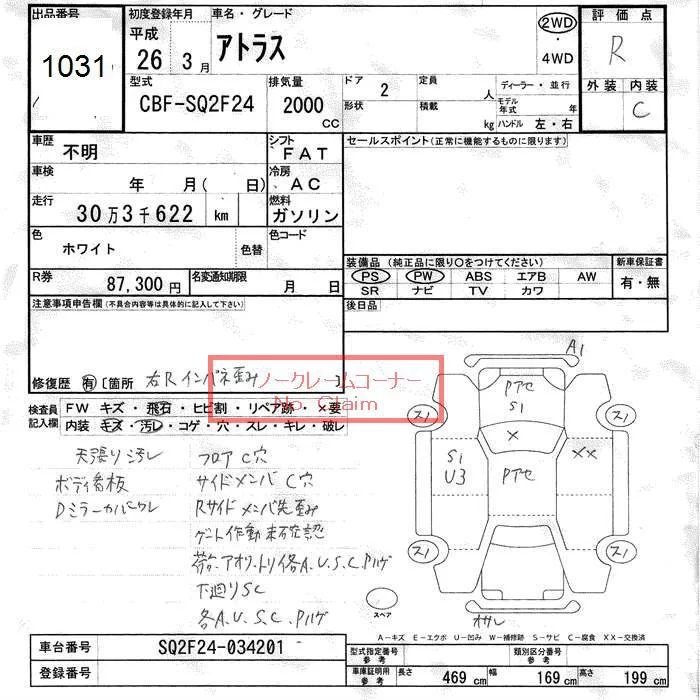 出品番号
1031
初度登録年月
平成
26 3 月
車名・グレード
アトラス
2WD
・
4WD
評価点
R
外装 内装
C
型式
CBF-SQ2F24
排気量
2000
CC
ドア
2
形状
定員
人
積載
kg
ディーラー・並行
モデル年式 年
ハンドル 左・右
車歴
不明
シフト
FAT
セールスポイント(正常に機能するものに限ります)
車検
年 月( 日)
冷房
AC
走行
30万3千622 km
燃料
ガソリン
色
ホワイト
色替
色コード
装備品(純正品に限り○をつけてください)
PS PW ABS エアB AW
SR ナビ TV カワ
新車保証書
有・無
R券
87,300円
名変通知期限
月 日
後日品
注意事項申告欄(不具合内容等は具体的に記入して下さい)
修復歴 有 [箇所 右Rインパネ歪み ]
ノークレームコーナー
No Claim
検査員記入欄
FW キズ・飛石・ヒビ割・リペア跡・×要
内装 キズ・汚レ・コゲ・穴・スレ・キレ・破レ
天張り汚レ
ボディ看板
Dミラーカバーワレ
フロアC穴
サイドメンバC穴
Rサイドメンバ先歪み
ゲート作動未確認
荷、アオリ、トリイ各A.U.S.C.Pハゲ
下廻りSC
各A.U.S.C.Pハゲ
A1
Pアセ
S1
スノ
スノ
×
S1
U3
Pアセ
××
スノ
スノ
スペア
オサレ
A-キズ E-エクボ U-凹み W-補修跡 S-サビ C-腐食 XX-交換済
車台番号
SQ2F24-034201
登録番号
型式指定番号
参考
類別区分番号
参考
車庫証明用
参考
長さ 469 cm
幅 169 cm
高さ 199 cm